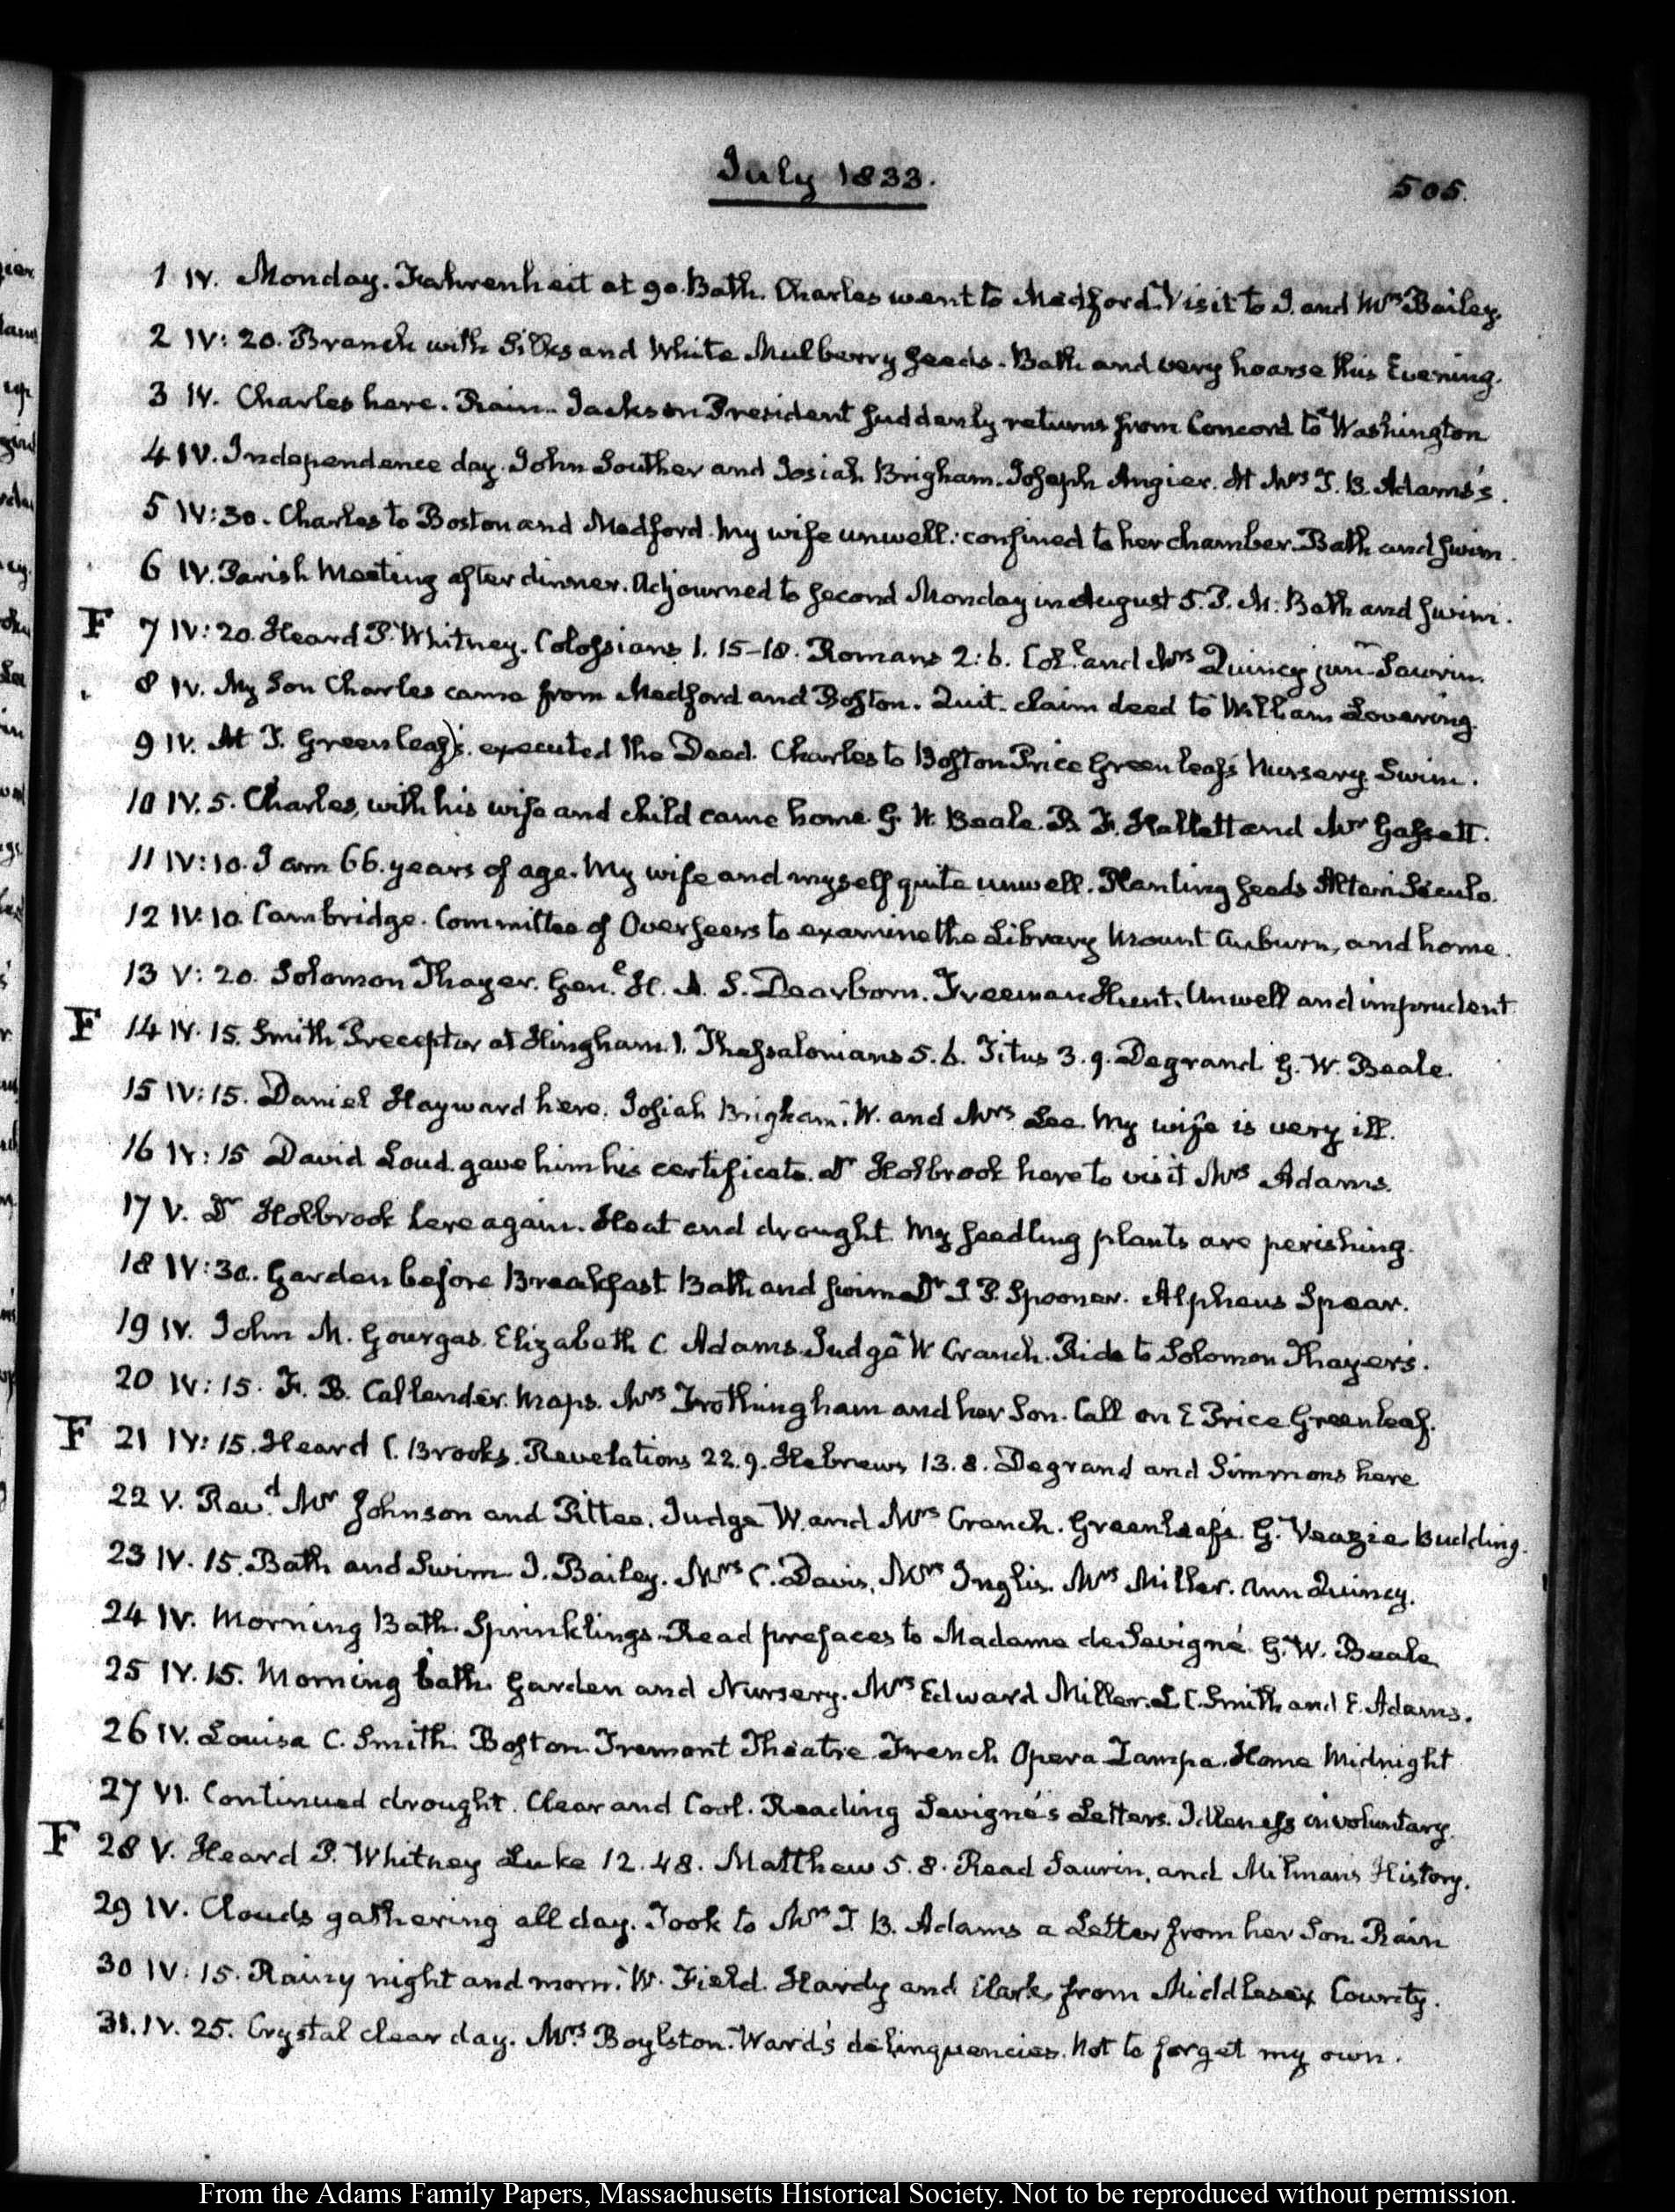 July 1833.
505.
1 IV. Monday. Fahrenheit at 90. Bath. Charles went to Medford. Visit to J. and Mrs Bailey.
2 IV: 20. Branch with Silks and White Mulberry seeds. Bath and very hoarse this Evening.
3 IV. Charles here. Rain. Jackson President suddenly returns from Concord to Washington
4 IV. Independence day. John Souther and Josiah Brigham. Joseph Angier. At Mrs T. B. Adams's.
5 IV:30. Charles to Boston and Medford. My wife unwell: confined to her chamber. Bath and swim.
6 IV. Parish Meeting after dinner. Adjourned to second Monday in August 5. P. M. Bath and swim.
F 7 IV: 20. Heard P. Whitney. Colossians 1. 15-18. Romans 2: 6. Col. and Mrs Quincy junr Saurin.
8 IV. My Son Charles came from Medford and Boston. Quit-claim deed to William Lovering.
9 IV. At T. Greenleaf's. executed the Deed. Charles to Boston Price Greenleaf's Nursery. Swim.
10 IV. 5. Charles, with his wife and child came home. G. W. Beale. B. F. Hallett and Mr Gassett.
11 IV:10. I am 66. years of age. My wife and myself quite unwell. Planting seeds Alteri Seculo.
12 IV: 10 Cambridge. Committee of Overseers to examine the Library Mount Auburn, and home.
13 V: 20. Solomon Thayer. Genl. H. A. S. Dearborn. Freeman Hunt. Unwell and imprudent
F 14 IV. 15. Smith Preceptor at Hingham. 1. Thessalonians 5. 6. Titus 3. 9. Degrand G. W. Beale.
15 IV: 15. Daniel Hayward here. Josiah Brigham. W. and Mrs Lee. My wife is very ill.
16 IV: 15 David Loud. gave him his certificate. Dr Holbrook here to visit Mrs Adams.
17 V. Dr Holbrook here again. Heat and drought. My seedling plants are perishing.
18 IV:30. Garden before Breakfast Bath and swim Dr J. P. Spooner. Alpheus Spear.
19 IV. John M. Gourgas. Elizabeth C. Adams. Judge W Cranch. Ride to Solomon Thayer's.
20 IV: 15. F. B. Callender. Maps. Mrs Frothingham and her Son. Call on E Price Greenleaf.
F 21 IV: 15. Heard C. Brooks. Revelations 22. 9. Hebrews 13. 8. Degrand and Simmons here
22 V. Revd. Mr Johnson and Pittee. Judge W. and Mrs Cranch. Greenleafs. G. Veazie Budding.
23 IV. 15. Bath and Swim. J. Bailey. Mrs C. Davis. Mrs Inglis. Mrs Miller. Ann Quincy.
24 IV. Morning Bath. Sprinklings. Read prefaces to Madame de Sevigné. G. W. Beale
25 IV. 15. Morning bath. Garden and Nursery. Mrs Edward Miller. L. C. Smith and E. Adams.
26 IV. Louisa C. Smith. Boston. Tremont Theatre French Opera Zampa. Home Midnight
27 VI. Continued drought. Clear and Cool. Reading Sevigné's Letters. Idleness involuntary.
F 28 V. Heard P. Whitney Luke 12. 48. Matthew 5. 8. Read Saurin, and Milman's History.
29 IV. Clouds gathering all day. Took to Mrs T. B. Adams a Letter from her Son. Rain
30 IV. 15. Rainy night and morn. W. Field. Hardy and Clark, from Middlesex County.
31. IV. 25. Crystal clear day. Mrs. Boylston. Ward's delinquencies. Not to forget my own.
From the Adams Family Papers, Massachusetts Historical Society. Not to be reproduced without permission.